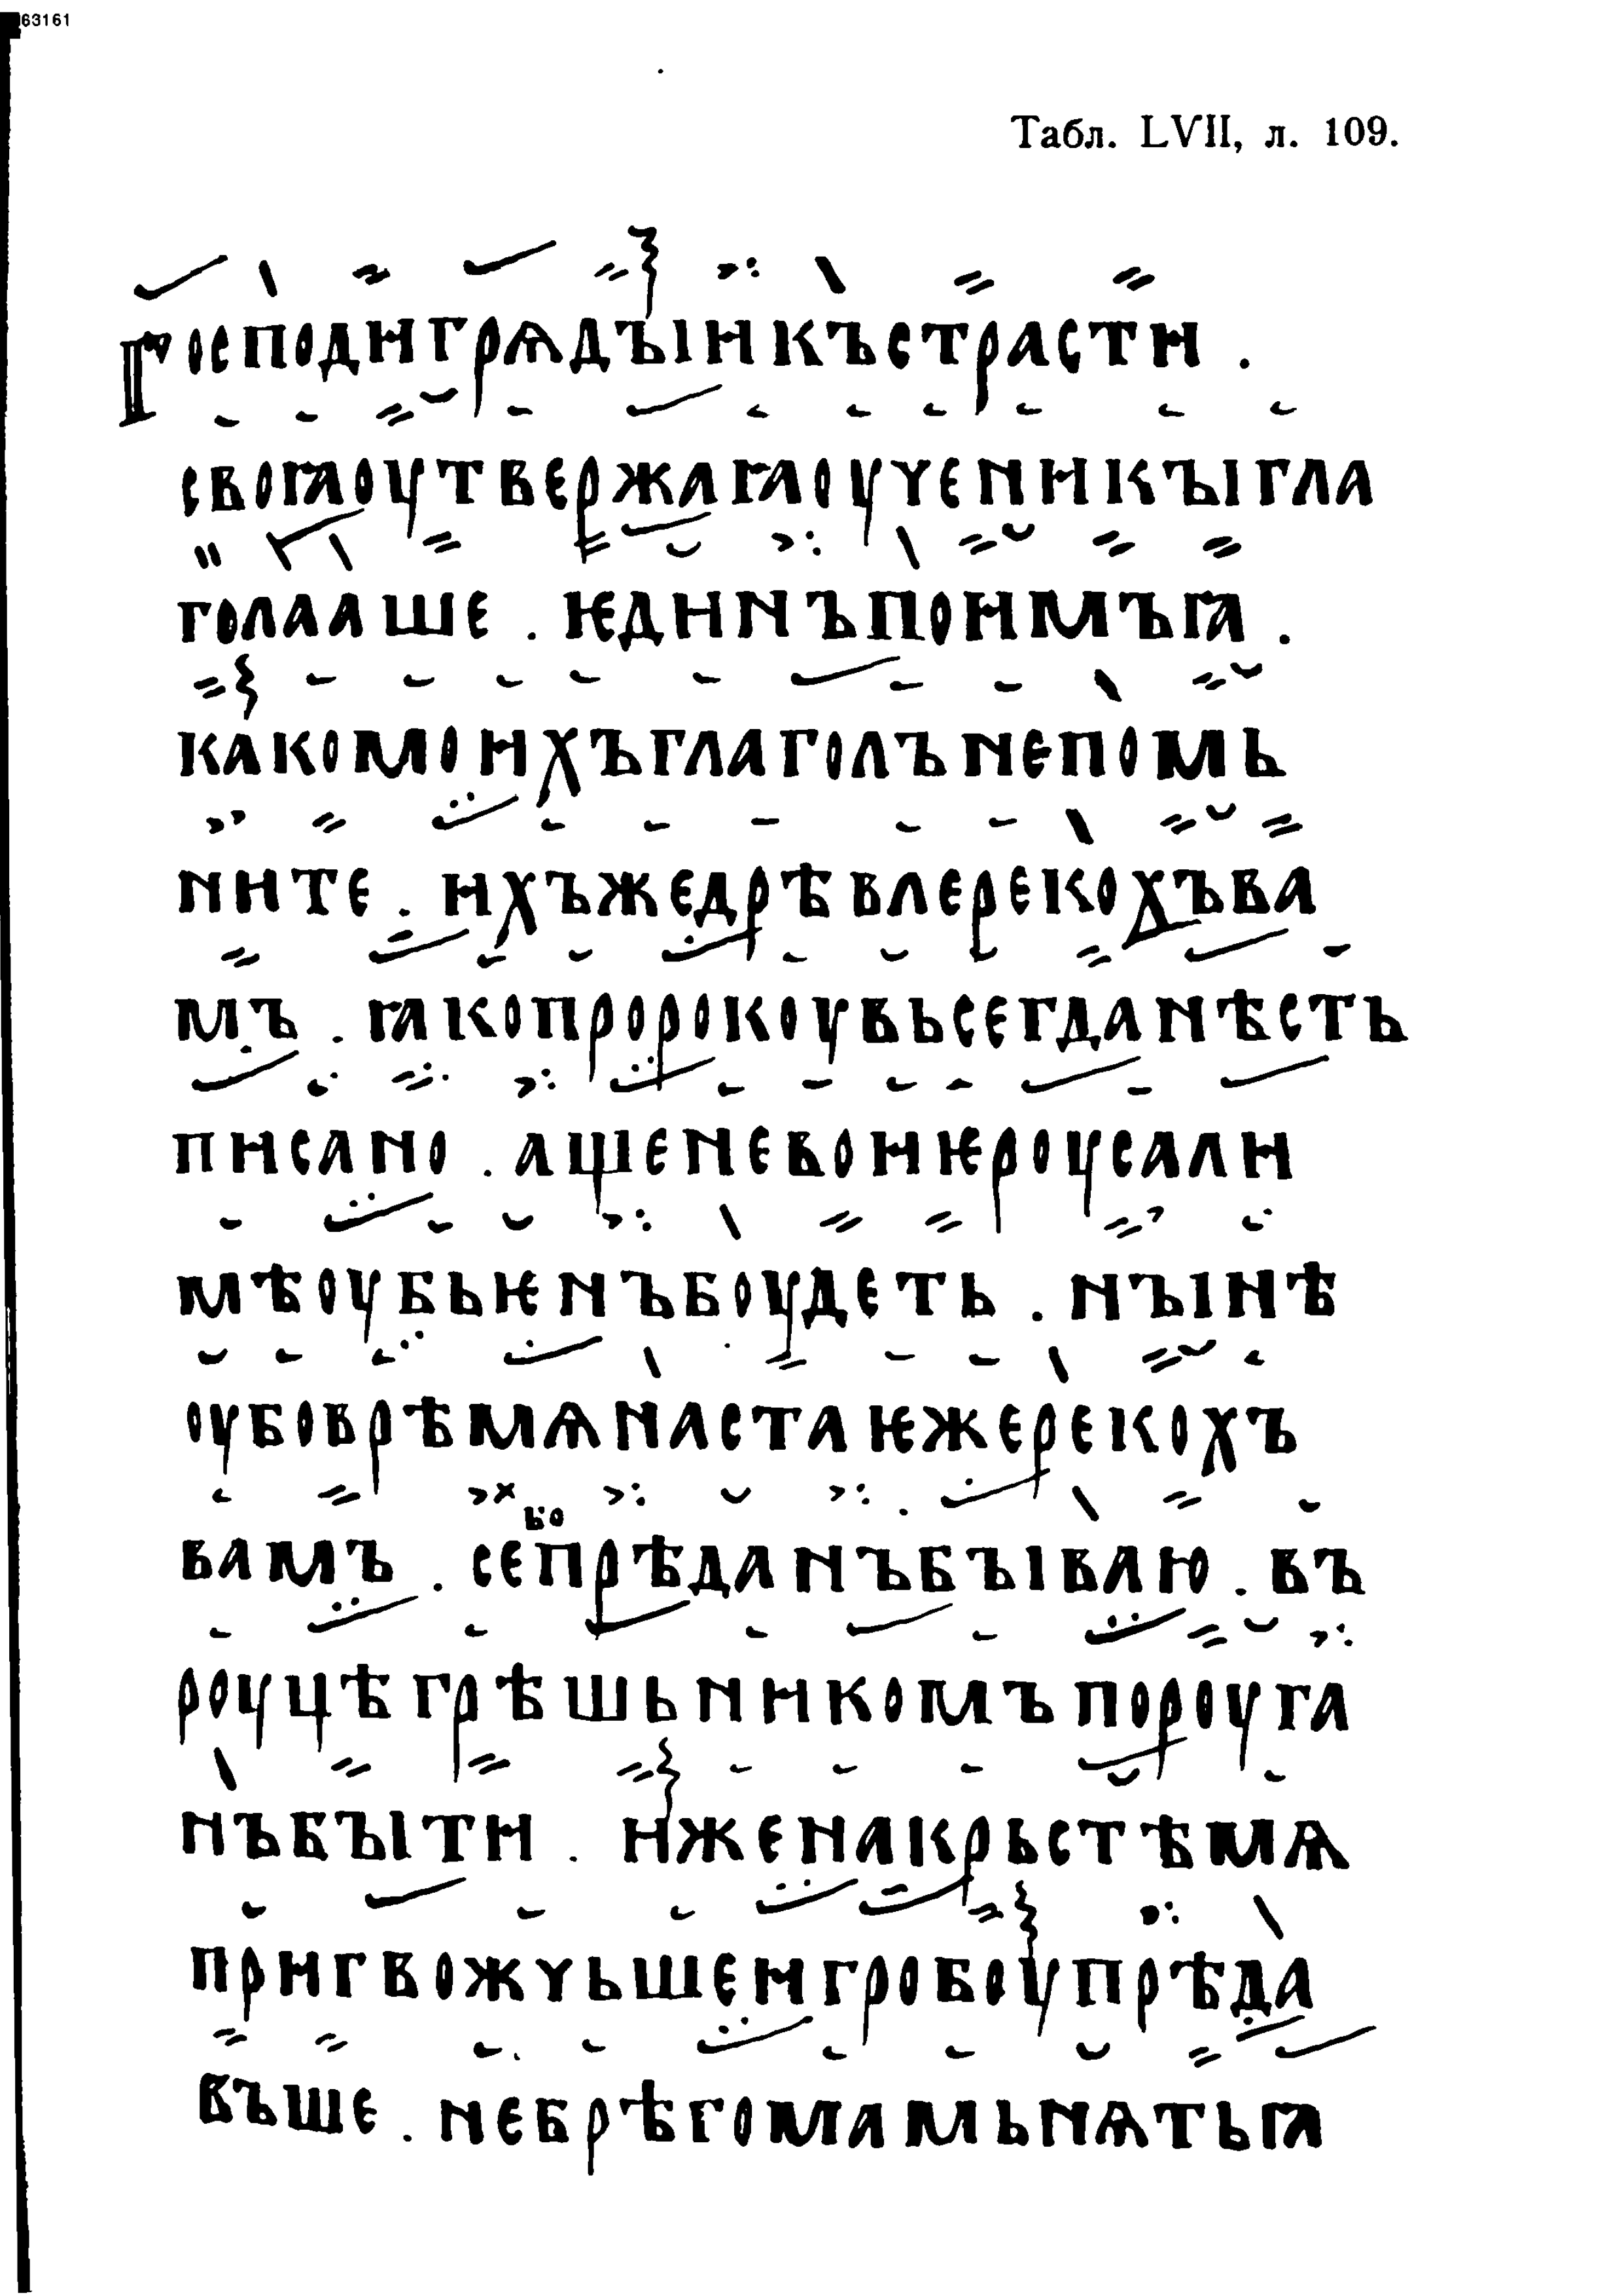 63161
Табл. LVII, л. 109.
Господи грѧдъıи къ страсти .
своꙗ оутвержаꙗ оученикъı гла
голааше . ѥдинъ поимъ ꙗ
како моихъ глаголъ не помь
ните . ихъже дрѣвле рекохъ ва
мъ . ꙗко пророкоу вьсегда нѣсть
писано . аще не во иѥроусали
мѣ оубьѥнъ боудеть . нъıнѣ
оубо врѣмѧ наста ѥже рекохъ
вамъ . се бо прѣданъ бъıваю . въ
роуцѣ грѣшьникомъ пороуга
нъ бъıти . иже на крьстѣ мѧ
пригвожчьше и гробоу прѣда
въше . небрѣгома мьнѧть ꙗ